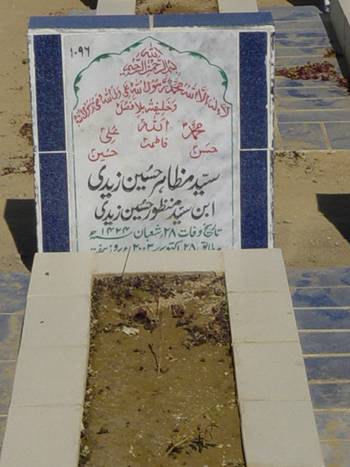 ۱۰۹۶
بسم اللہ الرحمن الرحیم
لا الہ الا اللہ محمد رسول اللہ علی ولی اللہ
وخلیفتہ بلا فصل
محمد اللہ علی
حسن فاطمہ حسین
سید مظاہر حسین زیدی
ابن سید منظور حسین زیدی
تاریخ وفات ۲۸ شعبان ۱۴۲۴ھ
اکتوبر ۲۰۰۳ء بروز ہفتہ